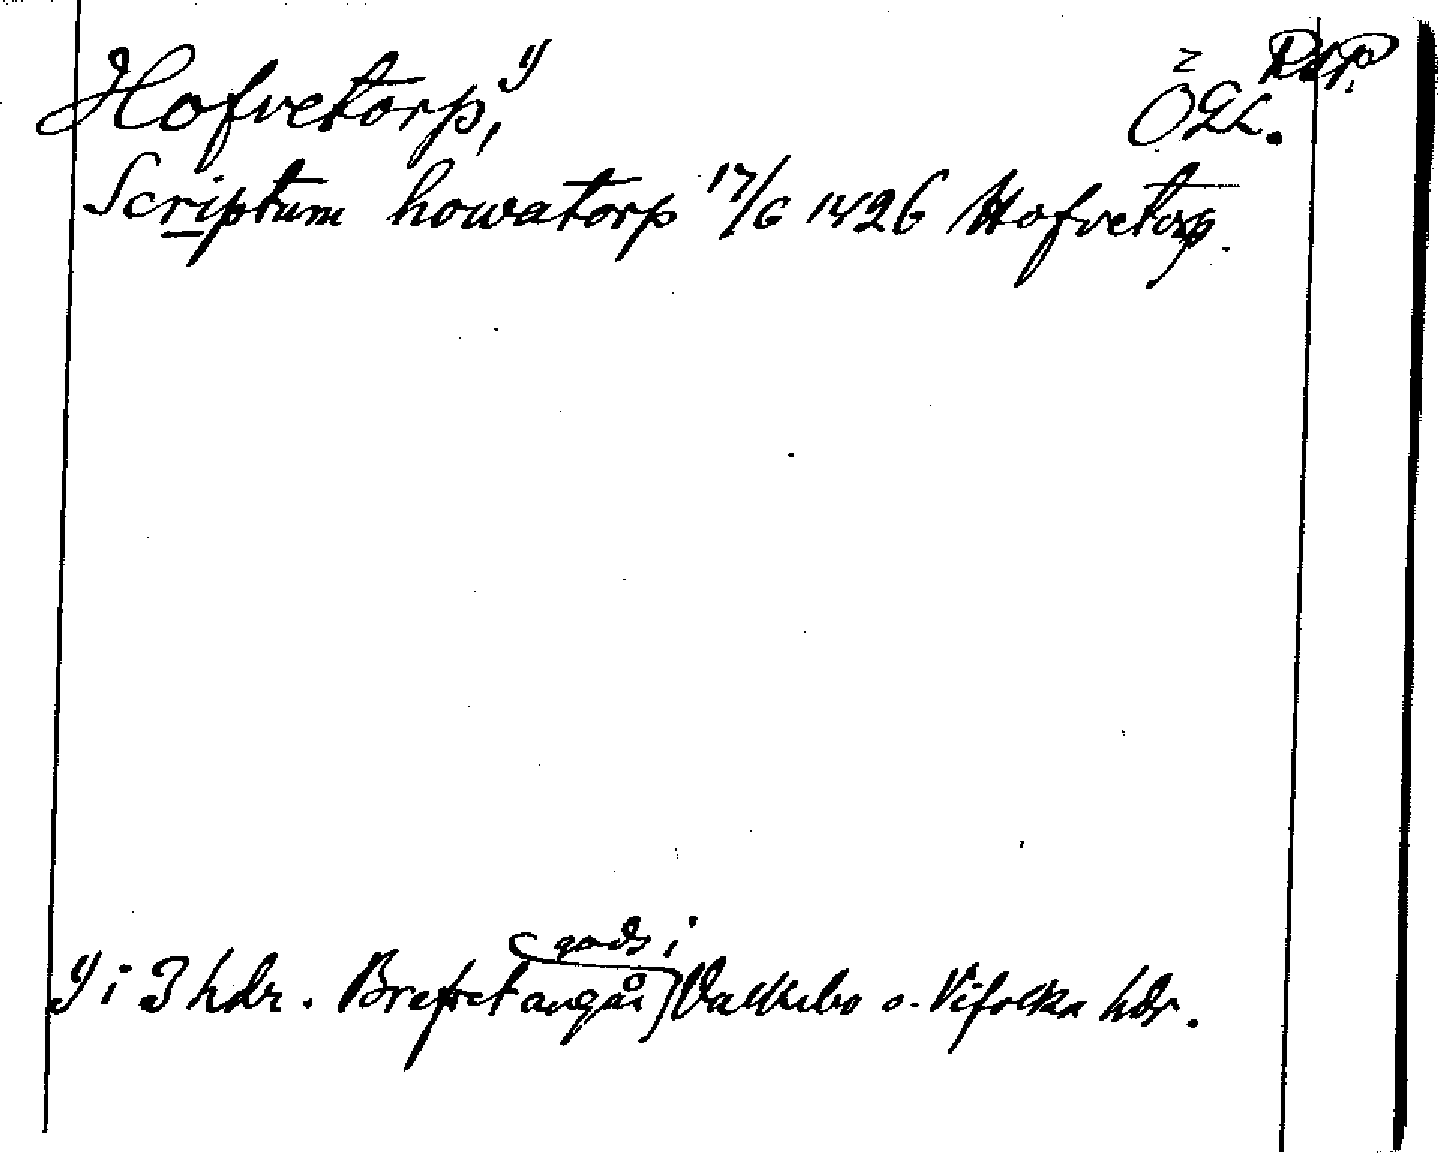 Hofvetorp, y
ÖGL. RAp.
Scriptum howatorp 17/6 1426 Hofvetorp.
y i 3 hdr. Brefvet angår gods i Valkebo o. Vifolka hdr.